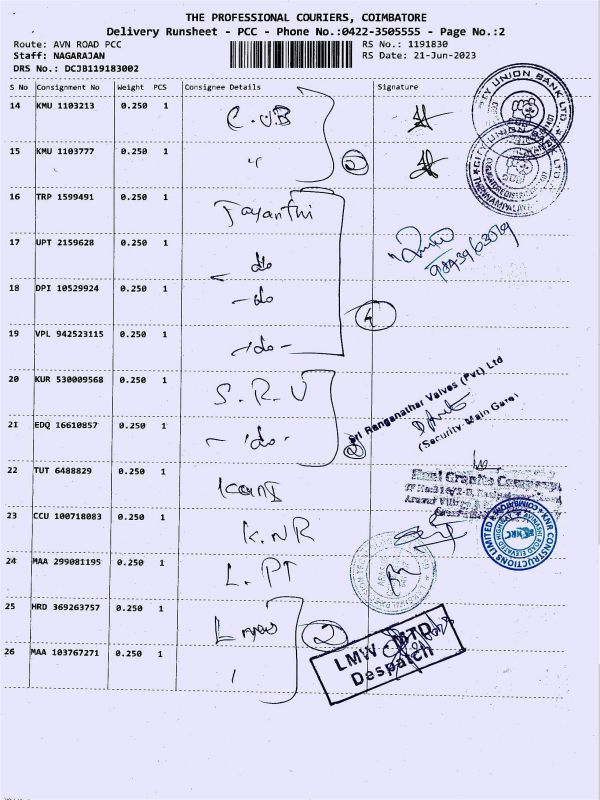 THE PROFESSIONAL COURIERS, COIMBATORE
Delivery Runsheet - PCC - Phone No.:0422-3505555 - Page No.:2
Route: AVN ROAD PCC
RS No.: 1191830
Staff: NAGARAJAN
RS Date: 21-Jun-2023
DRS No.: DCJB119183002
S No Consignment No Weight PCS Consignee Details Signature
14 KMU 1103213 0.250 1 C.UB
15 KMU 1103777 0.250 1 "
2
CITY UNION BANK LTD.
CITY UNION BANK LTD
16 TRP 1599491 0.250 1 Jayanthi
17 UPT 2159628 0.250 1 - do
18 DPI 10529924 0.250 1 - do
4
19 VPL 942523115 0.250 1 - do -
20 KUR 530009568 0.250 1 S.R.V
21 EDQ 16610857 0.250 1 - do -
2
Sri Ranganathar Valves (Pvt) Ltd
(Security-Main Gate)
22 TUT 6488829 0.250 1
Granite Company
23 CCU 100718083 0.250 1 K.NR
KNR CONSTRUCTIONS LIMITED
24 MAA 299081195 0.250 1 L.PT
25 HRD 369263757 0.250 1
2
26 MAA 103767271 0.250 1
LMW - MTD
Despatch